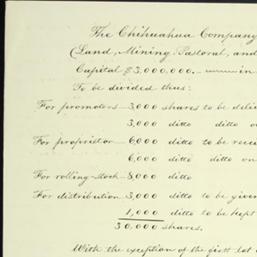 The Chihuahua Company
(Land, Mining, Pastoral, and
Capital $3,000,000. — in
To be divided thus:
For promoters 3,000 shares to be deli
3,000 ditto ditto on
For proprietor 6,000 ditto to be rece
6,000 ditto ditto on
For rolling-stock 8,000 ditto
For distribution 3,000 ditto to be give
1,000 ditto to be kept
30,000 shares.
With the exception of the first lot o